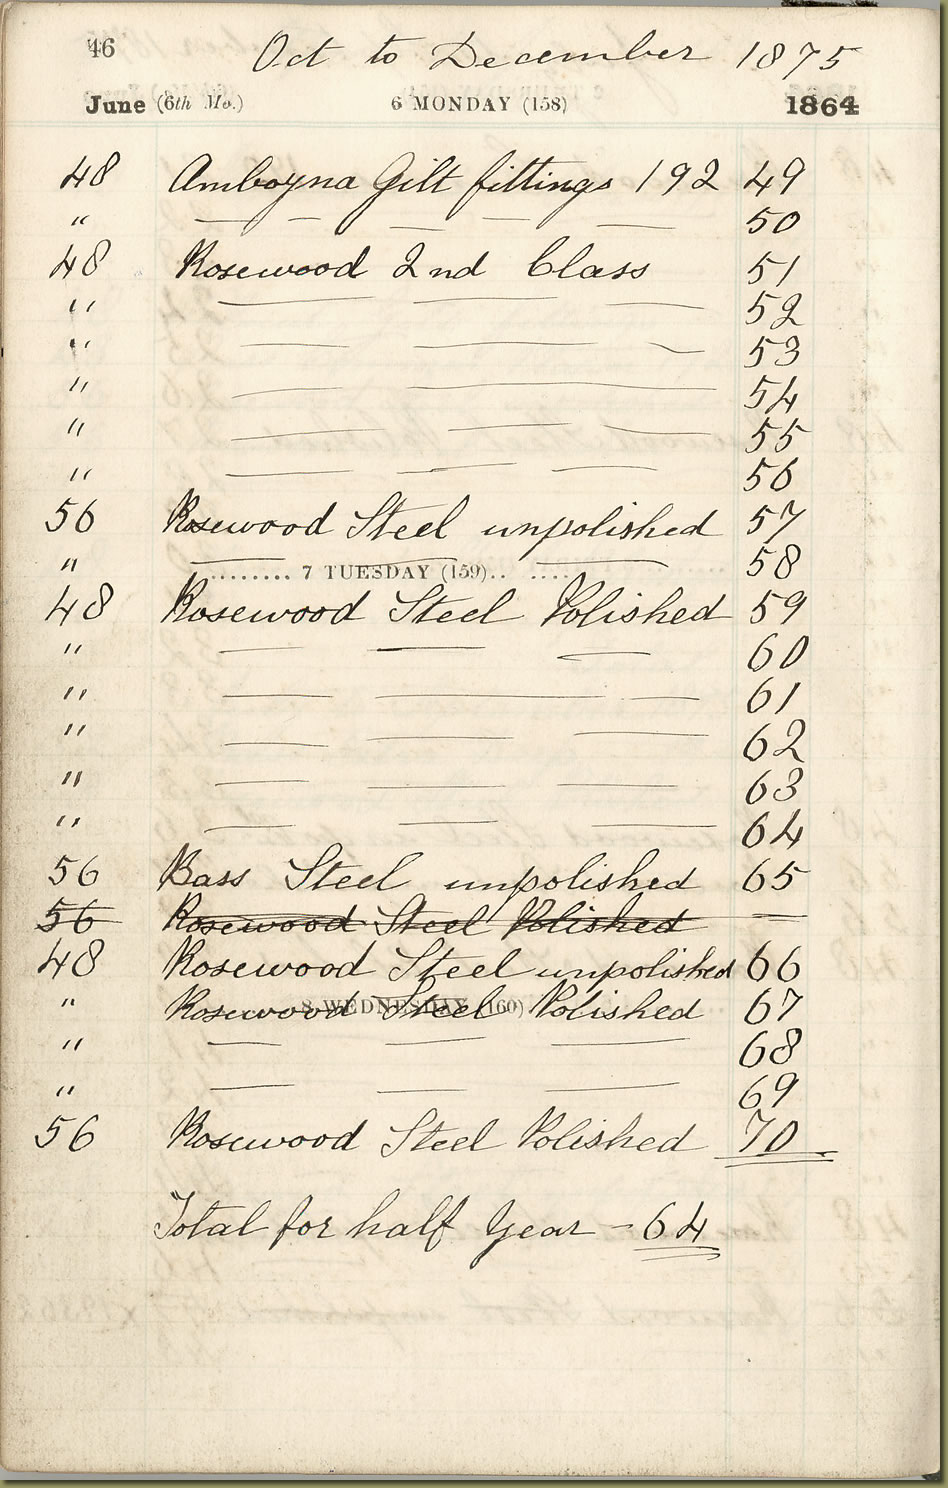 46
Oct to December 1875
June (6th Mo.) 6 MONDAY (158) 1864
48 Amboyna Gilt fittings 192 49
" — — — — — 50
48 Rosewood 2nd Class 51
" — — — 52
" — — — 53
" — — 54
" — — — 55
" — — — 56
56 Rosewood Steel unpolished 57
" — — — 58
7 TUESDAY (159)
48 Rosewood Steel Polished 59
" — — — 60
" — — — 61
" — — — 62
" — — — 63
" — — — 64
56 Bass Steel unpolished 65
56 Rosewood Steel Polished —
48 Rosewood Steel unpolished 66
8 WEDNESDAY (160)
" Rosewood Steel Polished 67
" — — — 68
" — — — 69
56 Rosewood Steel Polished 70
Total for half Year - 64